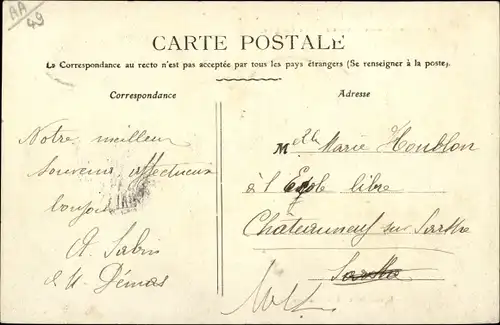 AA
49
CARTE POSTALE
La Correspondance au recto n'est pas acceptée par tous les pays étrangers (Se renseigner à la poste).
Correspondance
Adresse
Notre meilleur
souvenir affectueux
A. Sabin
Melle Marie Houblon
à l'Ecole libre
Chateauneuf sur Sarthe
Sarthe